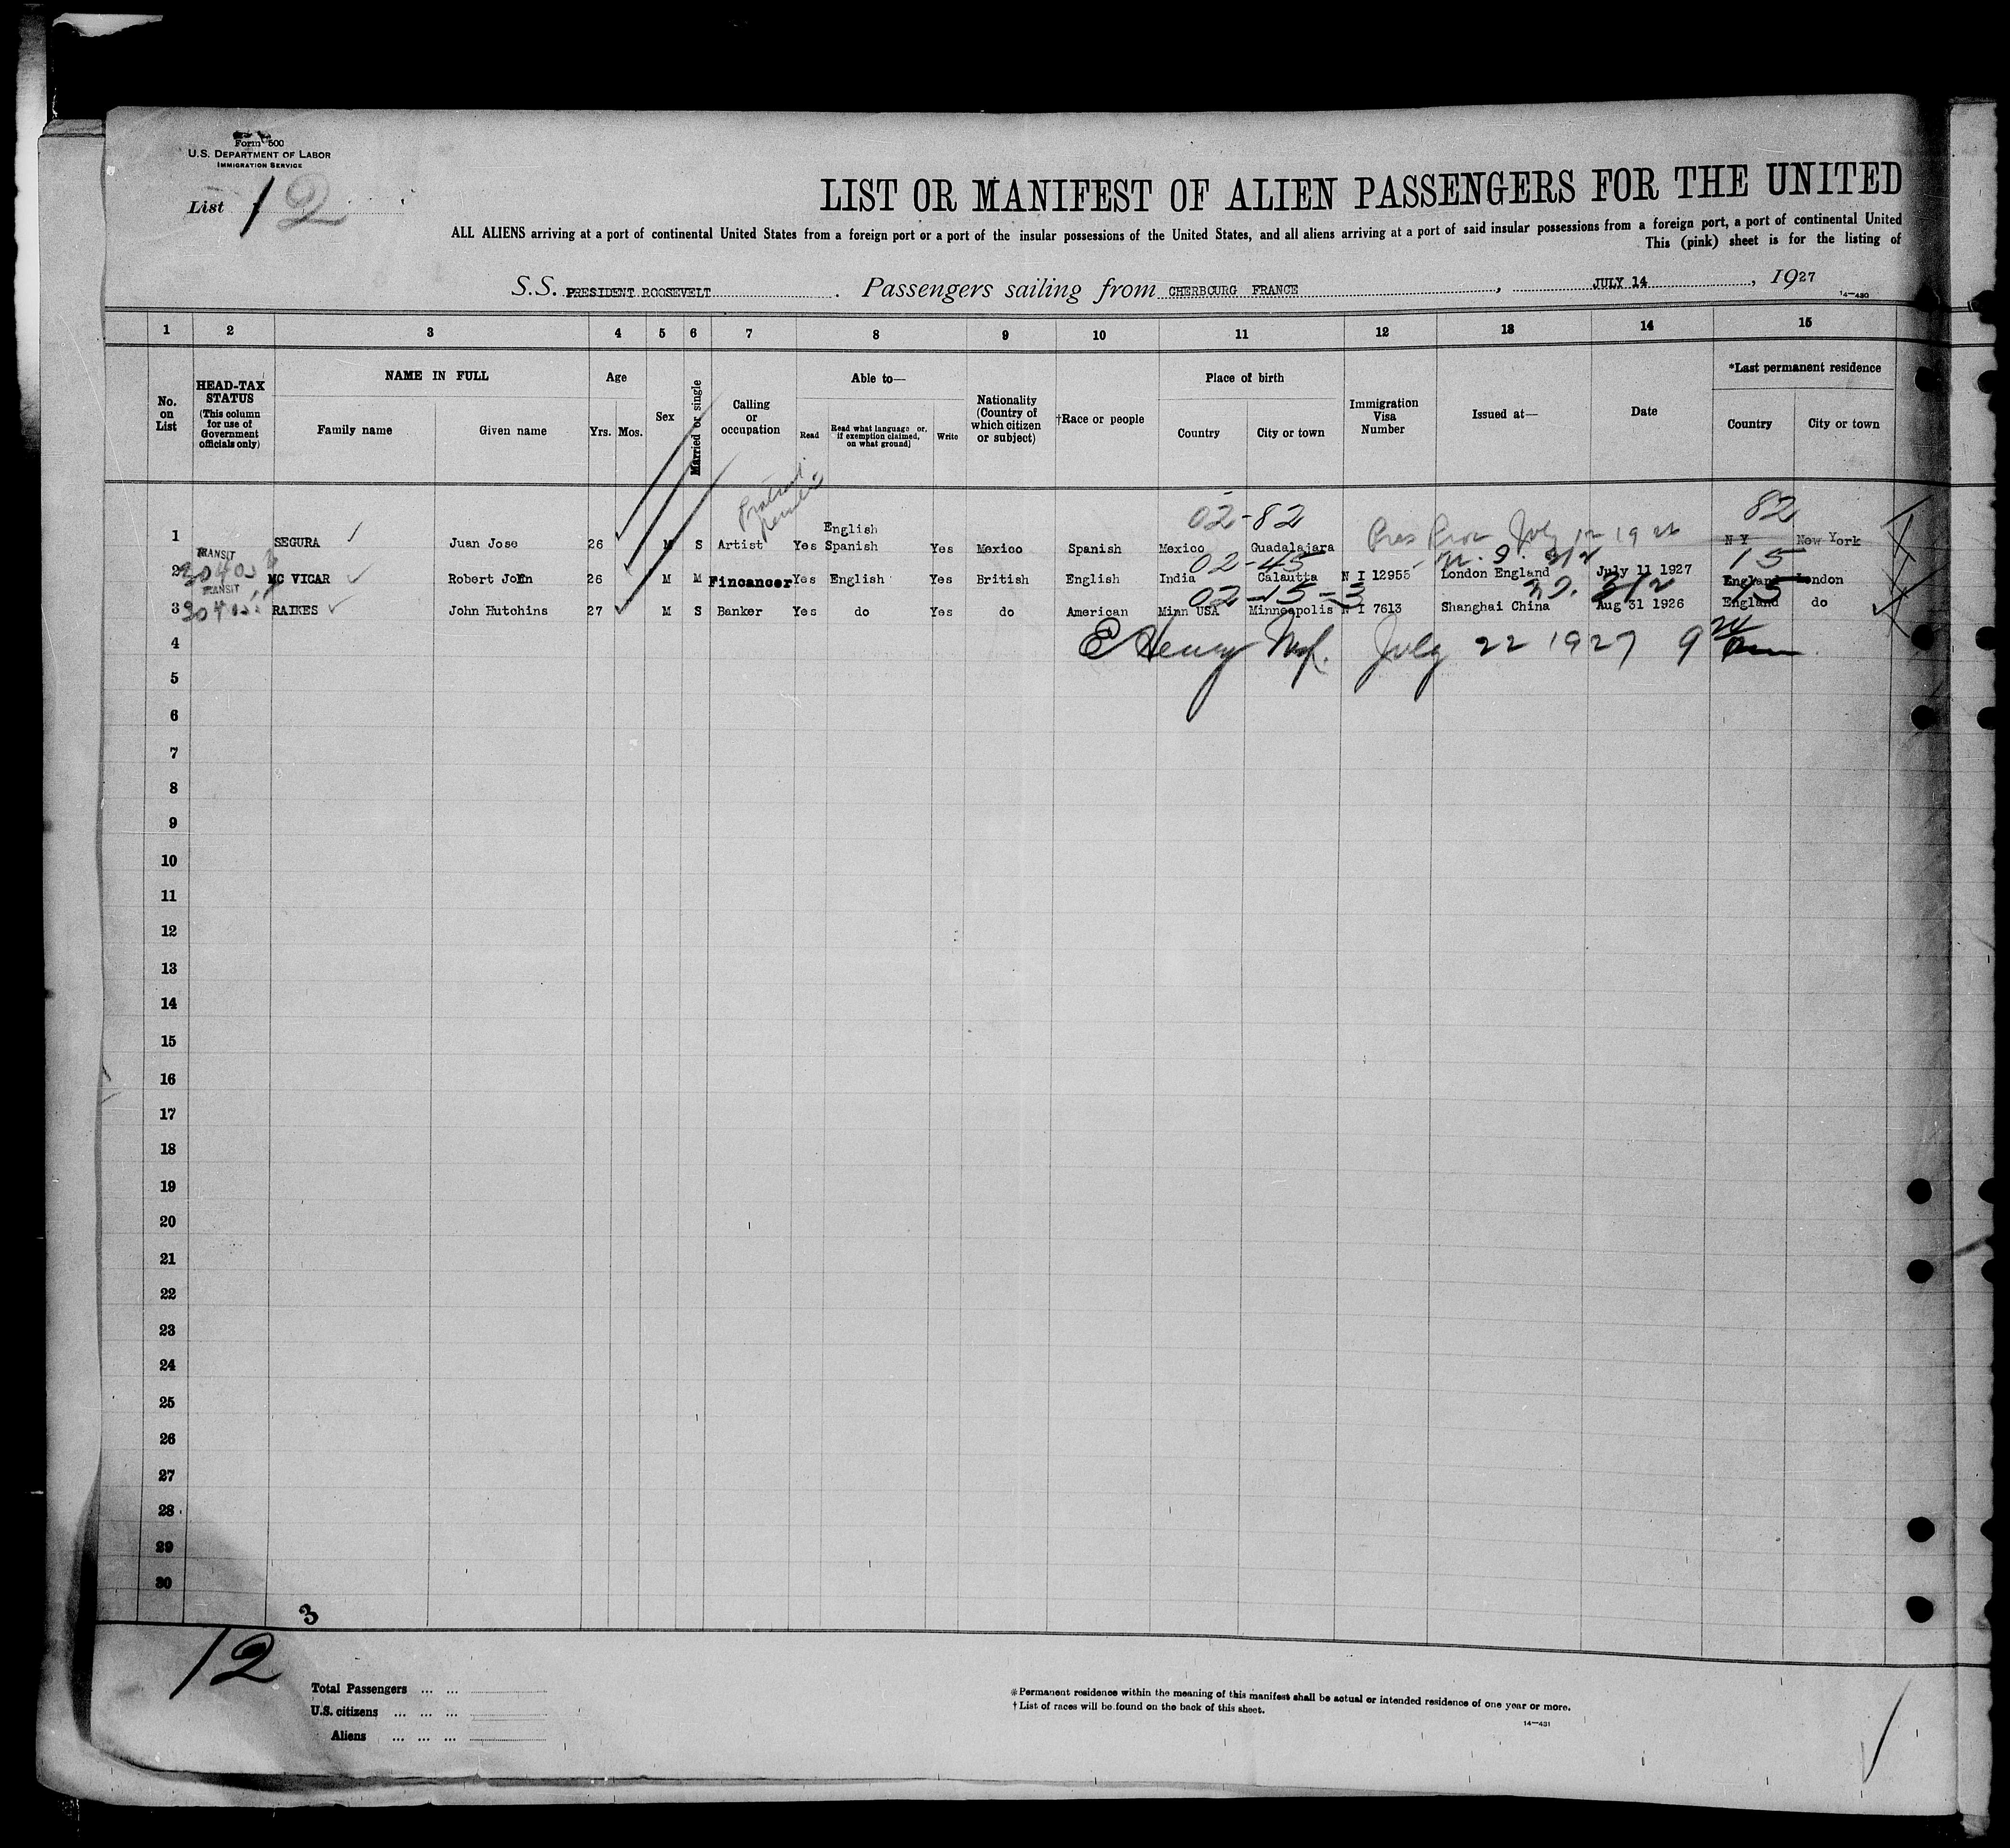 Form 500
U.S. DEPARTMENT OF LABOR
IMMIGRATION SERVICE
List 12
LIST OR MANIFEST OF ALIEN PASSENGERS FOR THE UNITED
ALL ALIENS arriving at a port of continental United States from a foreign port or a port of the insular possessions of the United States, and all aliens arriving at a port of said insular possessions from a foreign port, a port of continental United
This (pink) sheet is for the listing of
S.S. PRESIDENT ROOSEVELT. Passengers sailing from CHERBOURG FRANCE, JULY 14, 1927
14—430
1 2 3 4 5 6 7 8 9 10 11 12 13 14 15
No. on List
HEAD-TAX STATUS (This column for use of Government officials only)
NAME IN FULL
Family name Given name
Age
Yrs. Mos.
Sex
Married or single
Calling or occupation
Able to—
Read Read what language or, if exemption claimed, on what ground Write
Nationality (Country of which citizen or subject)
†Race or people
Place of birth
Country City or town
Immigration Visa Number
Issued at—
Date
*Last permanent residence
Country City or town
02-82 82
English
1 SEGURA Juan Jose 26 M S Artist Yes Spanish Yes Mexico Spanish Mexico Guadalajara July 12 19 N Y New York
TRANSIT 02-45 N.I. 3/2 15
2 MC VICAR Robert John 26 M M Fincancer Yes English Yes British English India Calautta N I 12955 London England July 11 1927 England London
TRANSIT 02-15-3 3/2 15
3 RAIKES John Hutchins 27 M S Banker Yes do Yes do American Minn USA Minneapolis N I 7613 Shanghai China Aug 31 1926 England do
4 E Henry July 22 1927 9
5
6
7
8
9
10
11
12
13
14
15
16
17
18
19
20
21
22
23
24
25
26
27
28
29
30
3
12
Total Passengers ... ...
U.S. citizens ... ... ...
Aliens ... ... ...
*Permanent residence within the meaning of this manifest shall be actual or intended residence of one year or more.
†List of races will be found on the back of this sheet.
14—431